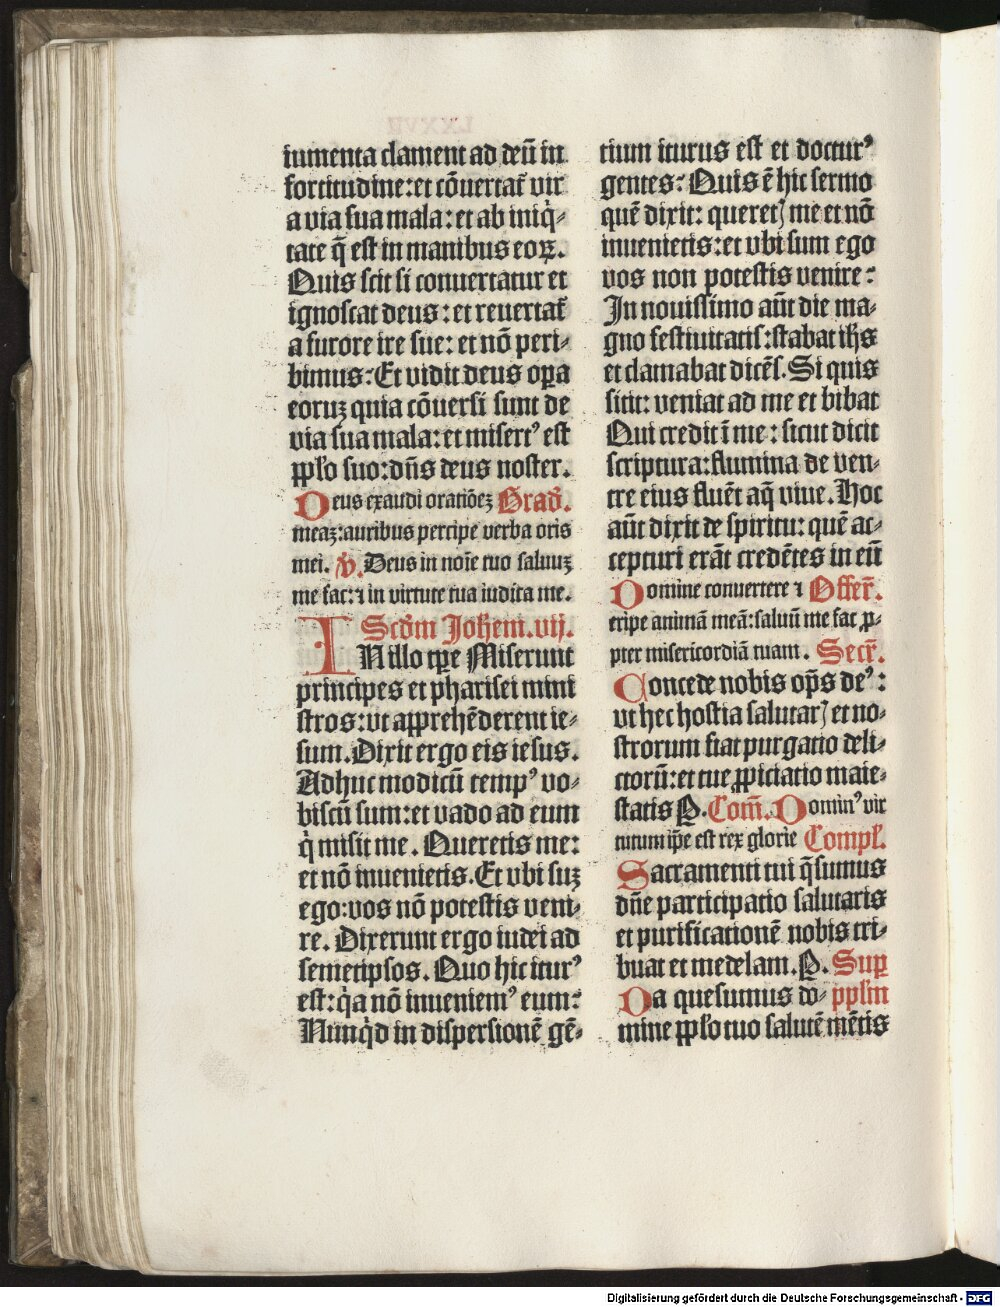 iumenta clament ad deū in
fortitudine: et cōuertat̄ vir
a via sua mala: et ab iniq̇-
tate q̄ est in manibus eoꝝ.
Quis scit si conuertatur et
ignoscat deus: et reuertat̄
a furore ire sue: et nō peri-
bimus: Et vidit deus oꝑa
eoruꝫ quia cōuersi sunt de
via sua mala: et misertꝰ est
ꝓpl'o suo: dn̄s deus noster.
Deus exaudi oratiōeꝫ Grad̄.
meaꝫ: auribus percipe verba oris
mei. ꝟ. Deus in noīe tuo saluuꝫ
me fac: ⁊ in virtute tua iudica me.
Scd̄m Johem. vij.
IN illo tꝑe Miserunt
principes et pharisei mini
stros: vt apprehēderent ie-
sum. Dixit ergo eis iesus.
Adhuc modicū tempꝰ vo-
biscū sum: et vado ad eum
q̇ misit me. Queretis me:
et nō inuenietis. Et vbi suꝫ
ego: vos nō potestis veni-
re. Dixerunt ergo iudei ad
semetipsos. Quo hic iturꝰ
est: q̇a nō inueniemꝰ eum:
Nunq̇d in dispersionē gē-
tium iturus est et docturꝰ
gentes: Quis ē hic sermo
quē dixit: queretꝭ me et nō
inuenietis: et vbi sum ego
vos non potestis venire:
In nouissimo aūt die ma-
gno festiuitatis: stabat ih̄s
et clamabat dicēs. Si quis
sitit: veniat ad me et bibat
Qui credit ī me: sicut dicit
scriptura: flumina de ven-
tre eius fluēt aq̄ viue. Hoc
aūt dixit de spiritu: quē ac-
cepturi erāt credētes in eū
Domine conuertere ⁊ Offer̄.
eripe animā meā: saluū me fac ꝓ-
pter misericordiā tuam. Secr̄.
Concede nobis op̄s deꝰ:
vt hec hostia salutarꝭ et no-
strorum fiat purgatio deli-
ctorū: et tue ꝓpiciatio maie-
statis P. Com̄. Dominꝰ vir
tutum ip̄e est rex glorie Compl'.
Sacramenti tui q̄sumus
dn̄e participatio salutaris
et purificationē nobis tri-
buat et medelam. P. Suꝑ
Da quesumus do- ppl'm
mine ꝓpl'o tuo salutē mētis
Digitalisierung gefördert durch die Deutsche Forschungsgemeinschaft - DFG